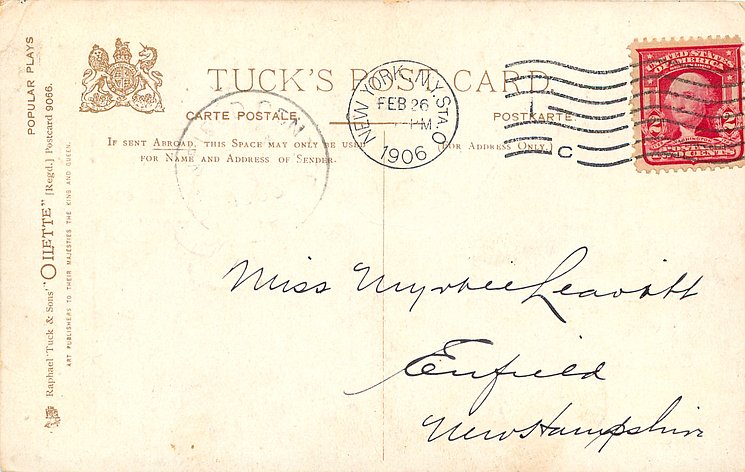 POPULAR PLAYS
Raphael Tuck & Sons' "OILETTE" [Regd.] Postcard 9066.
ART PUBLISHERS TO THEIR MAJESTIES THE KING AND QUEEN.
TUCK'S POST CARD
CARTE POSTALE.
POSTKARTE.
IF SENT ABROAD, THIS SPACE MAY ONLY BE USED
FOR NAME AND ADDRESS OF SENDER.
(FOR ADDRESS ONLY.)
NEW YORK, N.Y. STA. O
FEB 26
PM
1906
1
C
UNITED STATES
OF AMERICA
2 2
Miss Myrtie Leavitt
Enfield
New Hampshire